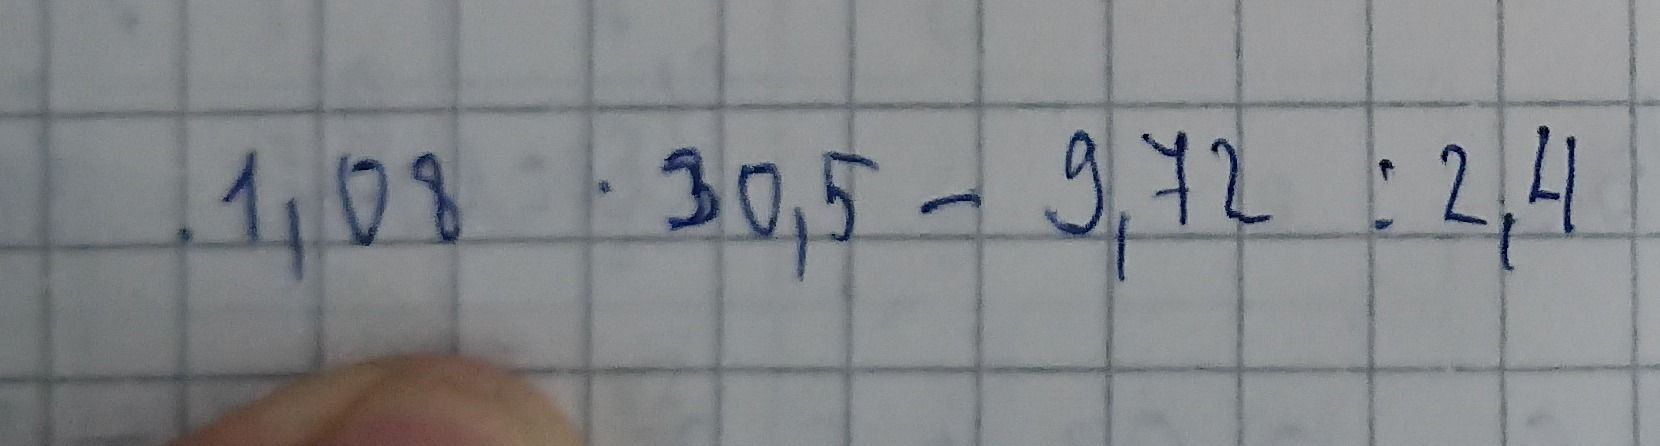 1,08 · 30,5 - 9,72 : 2,4